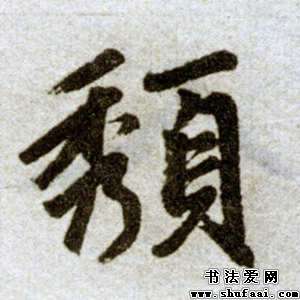 頹
书法爱网
www.shufaai.com